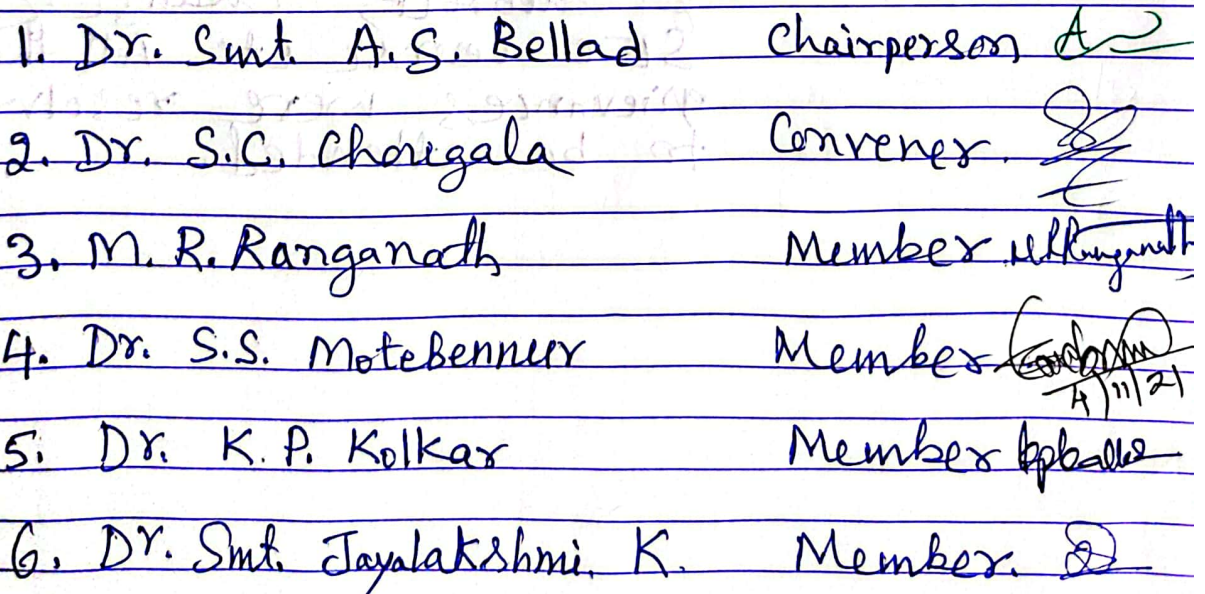 1. Dr. Smt. A.S. Bellad Chairperson
2. Dr. S.C. Chougala Convener.
3. M. R. Ranganath Member MRRanganath
4. Dr. S.S. Motebennur Member
4/11/21
5. Dr. K. P. Kolkar Member
6. Dr. Smt. Jayalakshmi. K. Member.